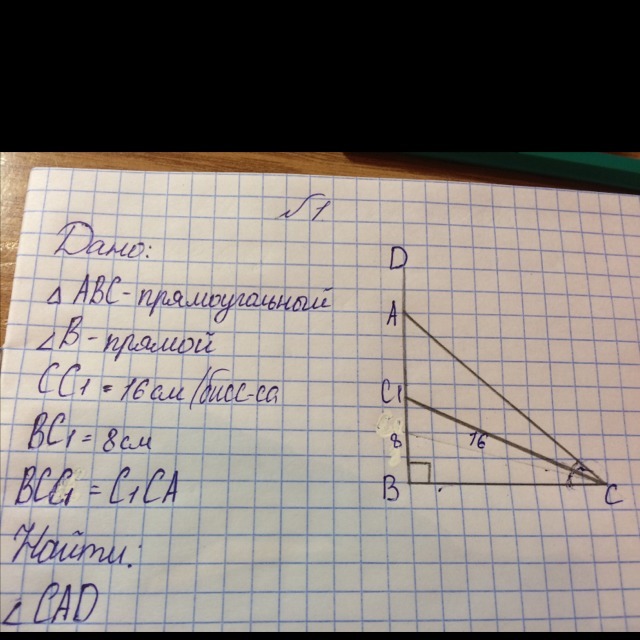 №1
Дано:
△ABC - прямоугольный
∠B - прямой
CC1 = 16см/бисс-са
BC1 = 8см
BCC1 = C1CA
Найти:
∠CAD
D
A
C1
8
16
B
C